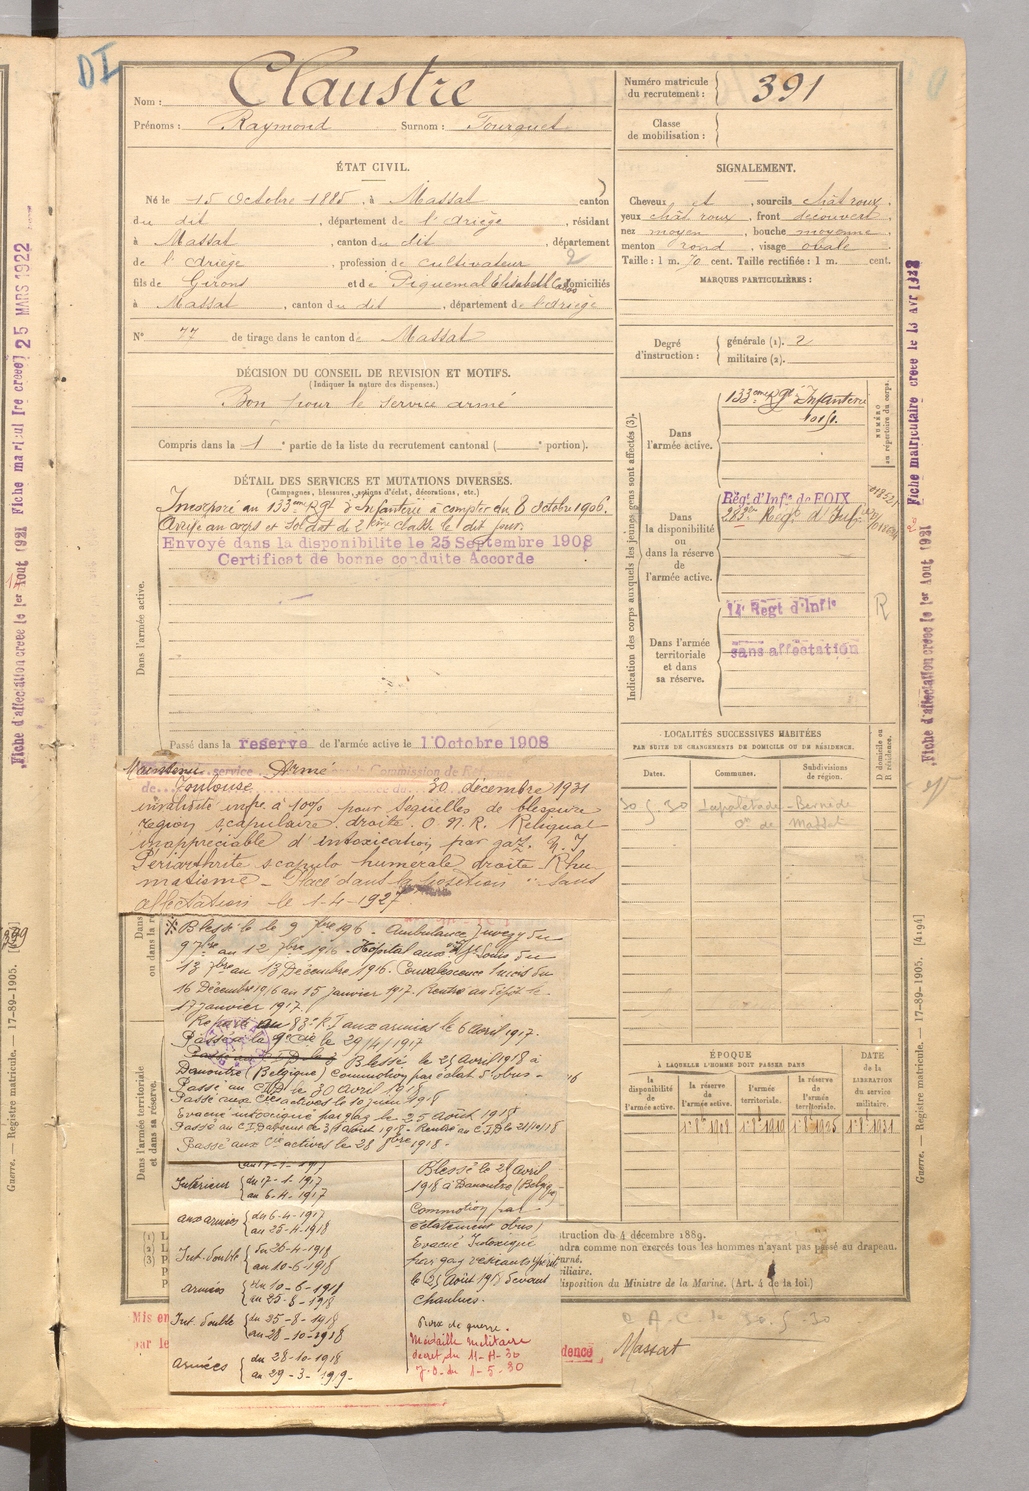 DI
Nom : Claustre
Prénoms : Raymond Surnom :
Numéro matricule du recrutement : 391
Classe de mobilisation :
ÉTAT CIVIL.
Né le 15 Octobre 1885, à Massat canton
du dit, département de l'Ariège, résidant
à Massat, canton du dit, département
de l'Ariège, profession de cultivateur 2
fils de Girons et de Piquemal Elisabeth domiciliés
à Massat, canton du dit, département de l'Ariège
N° 77 de tirage dans le canton de Massat
SIGNALEMENT.
Cheveux et, sourcils chât roux,
yeux chât roux, front découvert,
nez moyen, bouche moyenne,
menton rond, visage ovale
Taille : 1 m. 70 cent. Taille rectifiée : 1 m. cent.
MARQUES PARTICULIÈRES :
Degré d'instruction : générale (1). 2
militaire (2).
DÉCISION DU CONSEIL DE REVISION ET MOTIFS.
(Indiquer la nature des dispenses.)
Bon pour le service armé
Compris dans la 1e partie de la liste du recrutement cantonal ( e portion).
DÉTAIL DES SERVICES ET MUTATIONS DIVERSES.
(Campagnes, blessures, actions d'éclat, décorations, etc.)
Incorporé au 133eme Rgt d'Infanterie à compter du 8 octobre 1906.
Arrivé au corps et soldat de 2eme classe le dit jour.
Envoyé dans la disponibilite le 25 Septembre 1908
Certificat de bonne conduite Accorde
Dans l'armée active.
Passé dans la reserve de l'armée active le 1 Octobre 1908
Indication des corps auxquels les jeunes gens sont affectés (3).
NUMÉRO au répertoire du corps.
Dans l'armée active.
133eme Rgt Infanterie
Dans la disponibilité ou dans la réserve de l'armée active.
Régt d'Infie de FOIX
283eme Régt d'Inf
Dans l'armée territoriale et dans sa réserve.
14e Regt d'Infie
sans affectation
R
Maintenu service Armé Commission de
de Toulouse du 30 décembre 1931
invalidité infre à 10% pour séquelles de blessure
région scapulaire droite. O. N. R. Reliquat
inappréciable d'intoxication par gaz. N. I.
Périarthrite scapulo humérale droite Rhu
matisme - Placé dans la position "Sans
affectation le 1-4-1927
LOCALITÉS SUCCESSIVES HABITÉES
PAR SUITE DE CHANGEMENTS DE DOMICILE OU DE RÉSIDENCE.
Dates. Communes. Subdivisions de région. D domicile ou R résidence.
30 5 30
Massat
Blessé le 9 7bre 1916. Ambulance du
9 7bre au 12 7bre 1916. Hôpital du
13 7bre au 13 Décembre 1916. Convalescence 1 mois du
16 Décembre 1916 au 15 Janvier 1917. Rentré au dépôt le
17 janvier 1917.
au 83e R.I aux armées le 6 avril 1917.
Passé à la 9e Cie le 29/4/1917
Blessé le 25 Avril 1918 à
Danoutre (Belgique) Commotion par éclat d'obus -
Passé au C.I.D le 30 Avril 1918
Passé aux Cies actives le 10 juin 1918
Evacué intoxiqué par gaz le 25 Août 1918
Passé aux Cies actives le 28 8bre 1918 -
Dans l'armée territoriale et dans sa réserve.
au 17-1-1917
Intérieur { du 17-1-1917
au 6-4-1917
aux armées { du 6-4-1917
au 25-4-1918
Int. double { du 26-4-1918
au 10-6-1918
armées { du 10-6-1918
au 25-8-1918
Int. double { du 25-8-1918
au 28-10-1918
Armées { du 28-10-1918
au 29-3-1919-
Blessé le 25 avril
1918 à Danoutre (Belgique)
Commotion par
éclatement obus
Evacué Intoxiqué
par gaz vésicants ypérite
le 25 Août 1918 devant
Chaulnes.
Croix de guerre.
Médaille militaire
décret du
J.O. du 1-5-30
ÉPOQUE
À LAQUELLE L'HOMME DOIT PASSER DANS
la disponibilité de l'armée active. la réserve de l'armée active. l'armée territoriale. la réserve de l'armée territoriale.
DATE de la LIBÉRATION du service militaire.
(1)
(2)
(3)
struction du 4 décembre 1889.
ndra comme non exercés tous les hommes n'ayant pas passé au drapeau.
urné.
iliaire.
disposition du Ministre de la Marine. (Art. 4 de la loi.)
Mis en
par le
dence
Massat
Fiche d'affectation creee le 1er Aout 1921 Fiche matricule creee le 25 MARS 1922
Fiche d'affectation creee le 1er Aout 1921
Guerre. — Registre matricule. — 17-89-1905.
Guerre. — Registre matricule. — 17-89-1905. [4194]